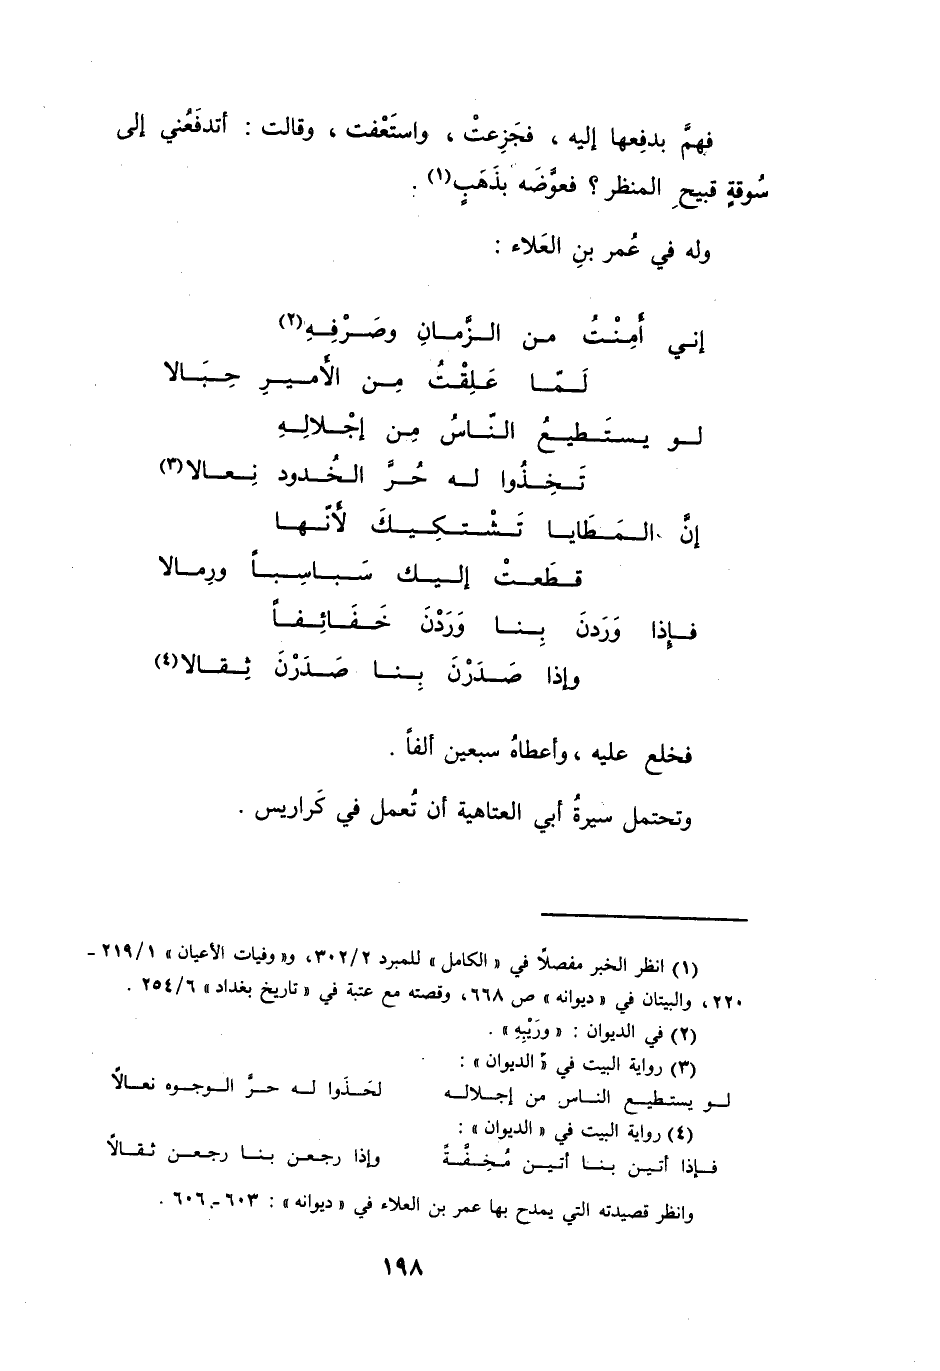 فهمَّ بدفعها إليه ، فجَزِعتْ ، واستَعْفت ، وقالت : أتدفَعُني إلى
سُوقةٍ قبيحِ المنظر ؟ فعوَّضَه بذَهَبٍ(١) .
وله في عُمر بنِ العَلاء :
إنـي أَمِنْـتُ مـن الـزَّمـانِ وصَـرْفِـهِ(٢)
لَـمّـا عَـلِقْـتُ مِـن الأَميـرِ حِـبَـالا
لـو يـستَـطيـعُ النّـاسُ مِـن إجْـلالِـهِ
تَـخِـذُوا لـه حُـرَّ الـخُـدود نِـعـالا(٣)
إنَّ الـمَـطَايـا تَـشْـتـكِـيـكَ لأَنّـهـا
قـطَعـتْ إليـك سَـبـاسِـبـاً ورِمـالا
فـإِذا وَرَدنَ بِـنـا وَرَدْنَ خَـفَـائِـفـاً
وإذا صَـدَرْنَ بِـنـا صَـدَرْنَ ثِـقـالا(٤)
فخلع عليه ، وأعطاهُ سبعين ألفاً .
وتحتمل سيرةُ أبي العتاهية أن تُعمل في كَراريس .
(١) انظر الخبر مفصلاً في « الكامل » للمبرد ٣٠٢/٢، و« وفيات الأعيان » ٢١٩/١ ـ
٢٢٠، والبيتان في « ديوانه » ص ٦٦٨، وقصته مع عتبة في « تاريخ بغداد » ٢٥٤/٦ .
(٢) في الديوان : « ورَيْبِهِ » .
(٣) رواية البيت في « الديوان » :
لـو يستطيـع النـاس من إجـلالـه لحَـذَوا لـه حـرَّ الـوجـوه نعـالاً
(٤) رواية البيت في « الديوان » :
فـإذا أتيـن بنـا أتيـن مُـخِـفَّـةً وإذا رجعـن بنـا رجعـن ثـقـالاً
وانظر قصيدته التي يمدح بها عمر بن العلاء في « ديوانه » : ٦٠٣ ـ ٦٠٦ .
١٩٨